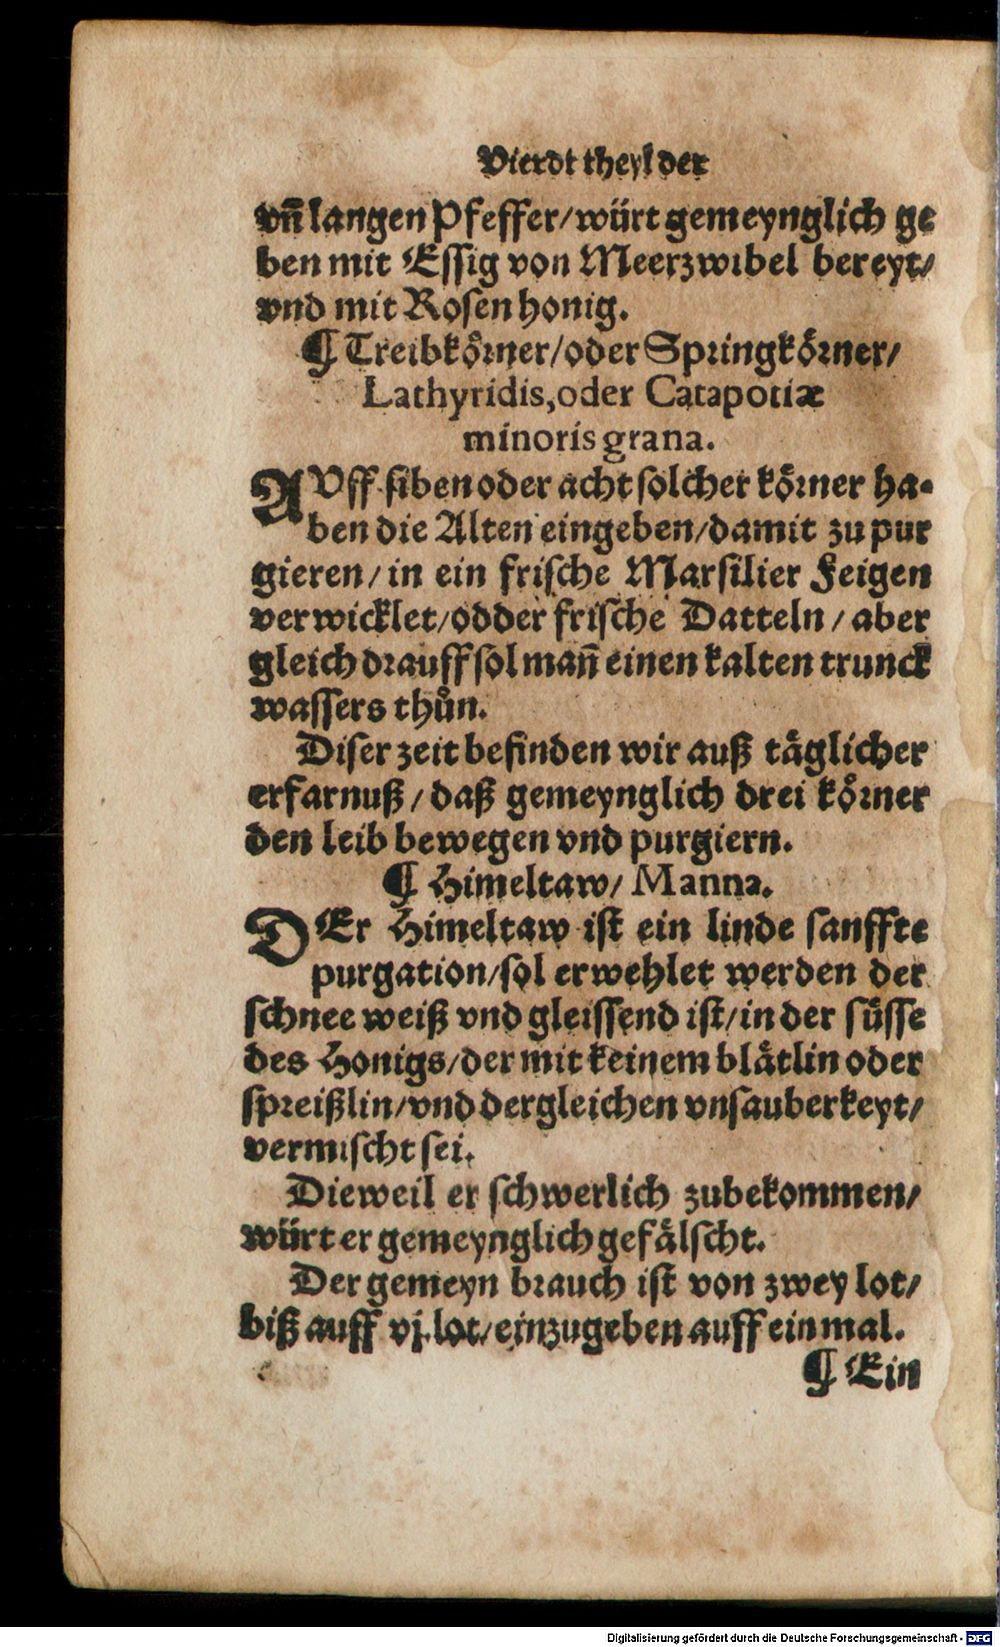 Vierdt theyl der
vñ langen Pfeffer/würt gemeynglich ge
ben mit Essig von Meerzwibel bereyt/
vnd mit Rosen honig.
¶ Treibkoͤrner/oder Springkoͤrner/
Lathyridis,oder Catapotiæ
minoris grana.
AVff siben oder acht solcher koͤrner ha-
ben die Alten eingeben/damit zu pur
gieren/in ein frische Marsilier Feigen
verwicklet/odder frische Datteln/aber
gleich drauff sol mañ einen kalten trunck
wassers thuͦn.
Diser zeit befinden wir auß taͤglicher
erfarnuß/daß gemeynglich drei koͤrner
den leib bewegen vnd purgiern.
¶ Himeltaw/Manna.
DEr Himeltaw ist ein linde sanffte
purgation/sol erwehlet werden der
schnee weiß vnd gleissend ist/in der suͤsse
des Honigs/der mit keinem blaͤtlin oder
spreißlin/vnd dergleichen vnsauberkeyt/
vermischt sei.
Dieweil er schwerlich zubekommen/
würt er gemeynglich gefaͤlscht.
Der gemeyn brauch ist von zwey lot/
biß auff vj.lot/einzugeben auff einmal.
¶ Ein
Digitalisierung gefördert durch die Deutsche Forschungsgemeinschaft - DFG